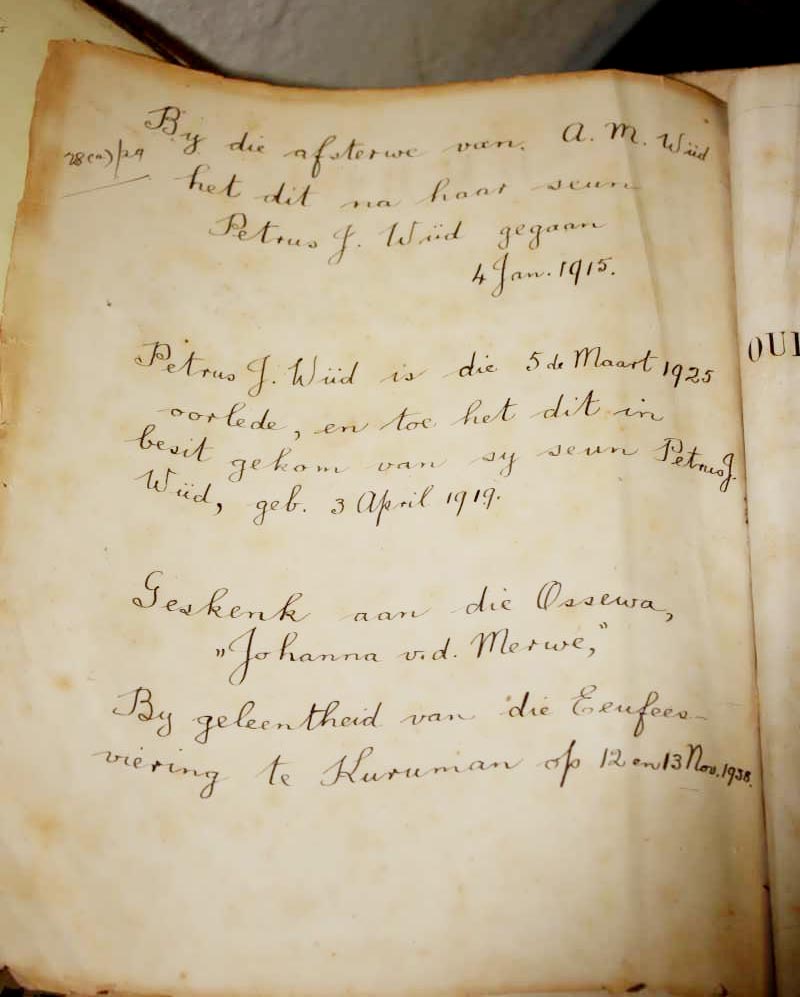 By die afsterwe van. A. M. Wiid
28(a)/29
het dit na haar seun
Petrus J. Wiid gegaan
4 Jan. 1915.
Petrus J. Wiid is die 5de Maart 1925
oorlede, en toe het dit in
besit gekom van sy seun Petrus J.
Wiid, geb. 3 April 1919.
Geskenk aan die Ossewa,
„Johanna v.d. Merwe,”
By geleentheid van die Eeufees-
viering te Kuruman op 12 en 13 Nov. 1938.
OUI